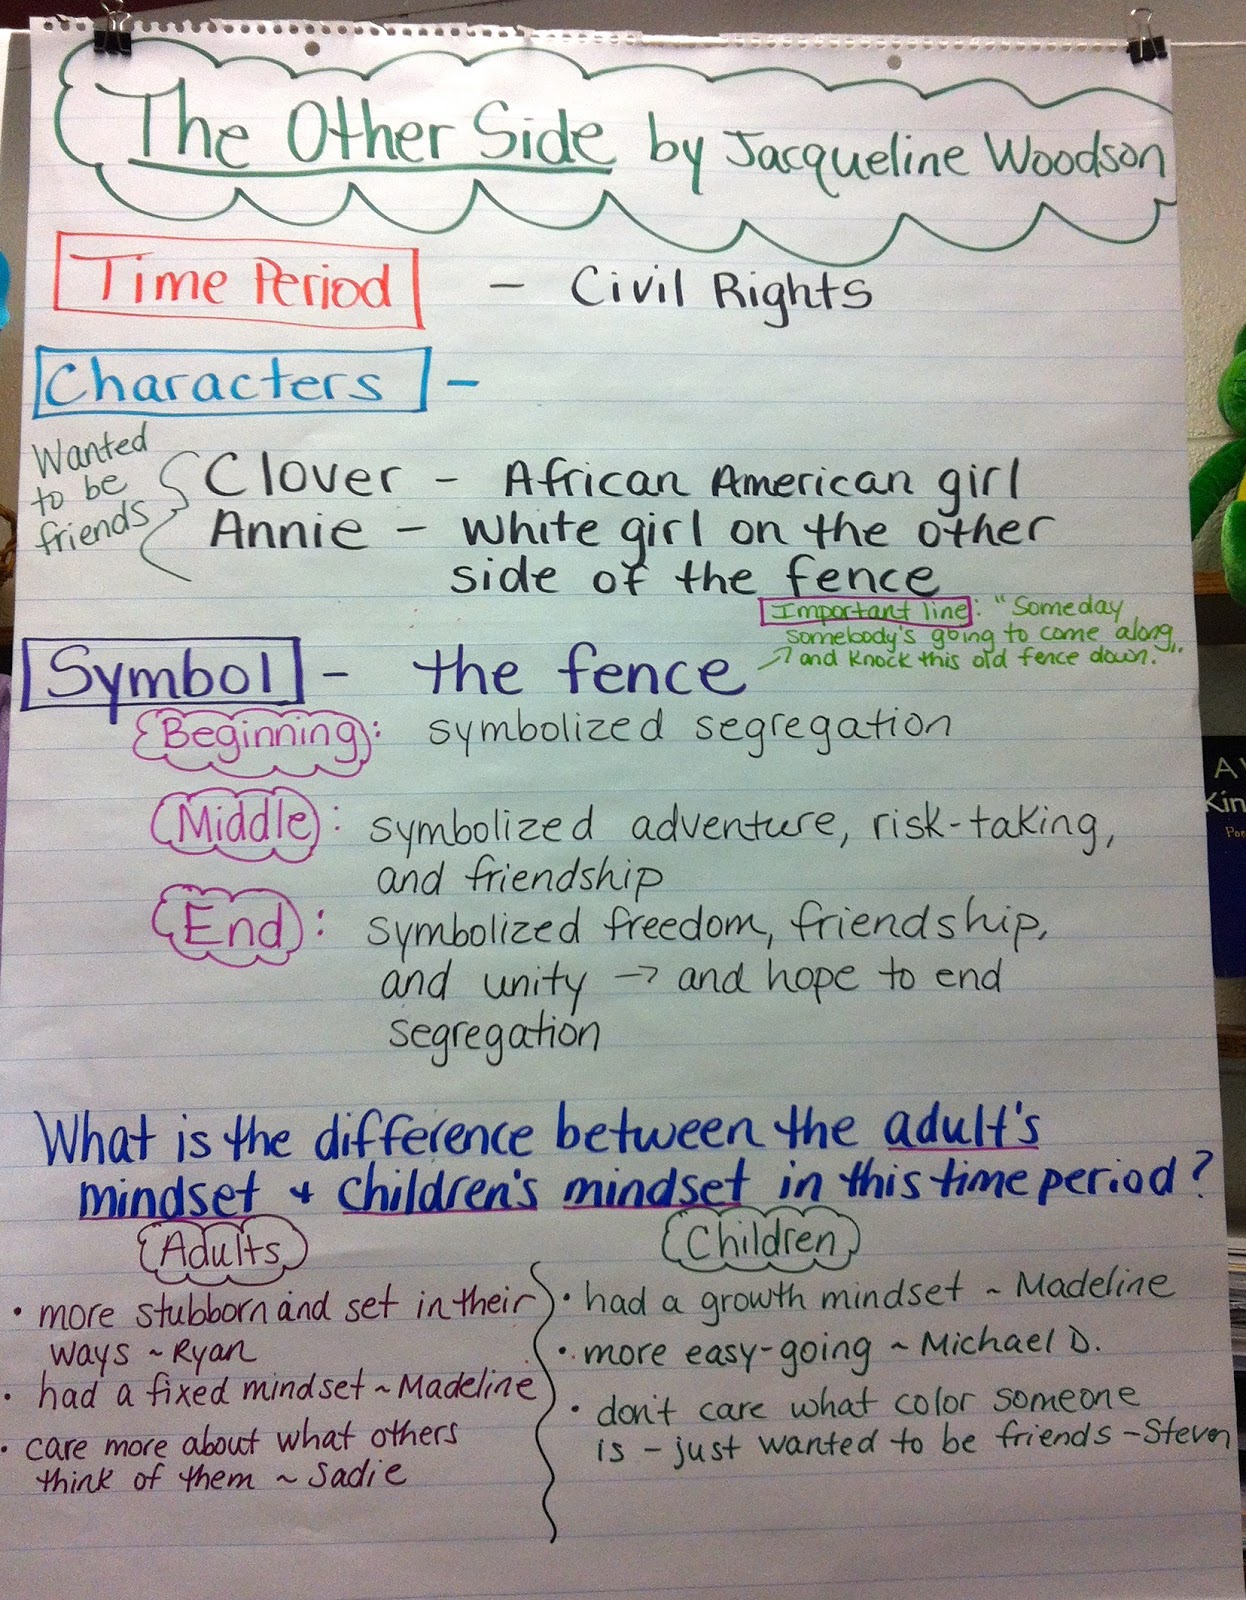 The Other Side by Jacqueline Woodson
Time Period - Civil Rights
Characters -
Wanted
to be
friends
Clover - African American girl
Annie - White girl on the other
side of the fence
Important line: "Someday
somebody's going to come along
and knock this old fence down."
Symbol - the fence
Beginning: symbolized segregation
Middle: symbolized adventure, risk-taking,
and friendship
End: symbolized freedom, friendship,
and unity → and hope to end
segregation
What is the difference between the adult's
mindset + children's mindset in this time period?
Adults
• more stubborn and set in their
ways ~ Ryan
• had a fixed mindset ~ Madeline
• care more about what others
think of them ~ Sadie
Children
• had a growth mindset ~ Madeline
• more easy-going ~ Michael D.
• don't care what color someone
is - just wanted to be friends - Steven
A
Kin